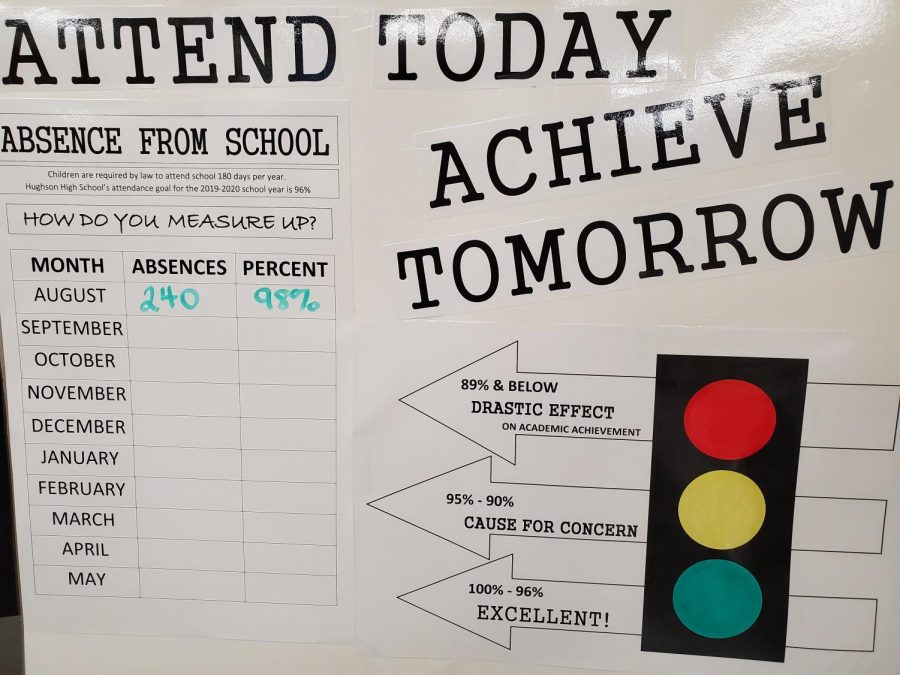 ATTEND TODAY
ACHIEVE
TOMORROW
ABSENCE FROM SCHOOL
Children are required by law to attend school 180 days per year.
Hughson High School's attendance goal for the 2019-2020 school year is 96%
HOW DO YOU MEASURE UP?
MONTH ABSENCES PERCENT
AUGUST 240 98%
SEPTEMBER
OCTOBER
NOVEMBER
DECEMBER
JANUARY
FEBRUARY
MARCH
APRIL
MAY
89% & BELOW
DRASTIC EFFECT
ON ACADEMIC ACHIEVEMENT
95% - 90%
CAUSE FOR CONCERN
100% - 96%
EXCELLENT!